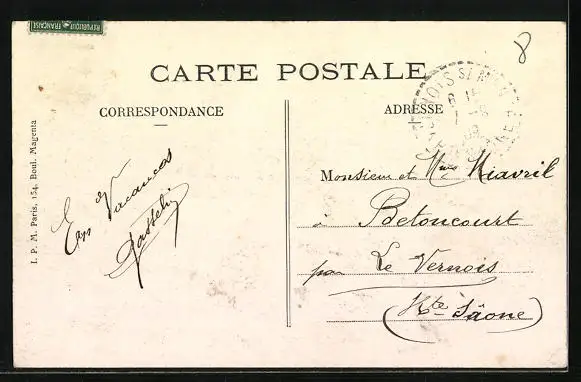 REPUBLIQUE FRANÇAISE
8
CARTE POSTALE
CORRESPONDANCE
ADRESSE
I. P. M. Paris, 154, Boul. Magenta
En Vacances
Monsieur et Mme Miavril
à Betoncourt
par Le Vernois
(Hte Saône)